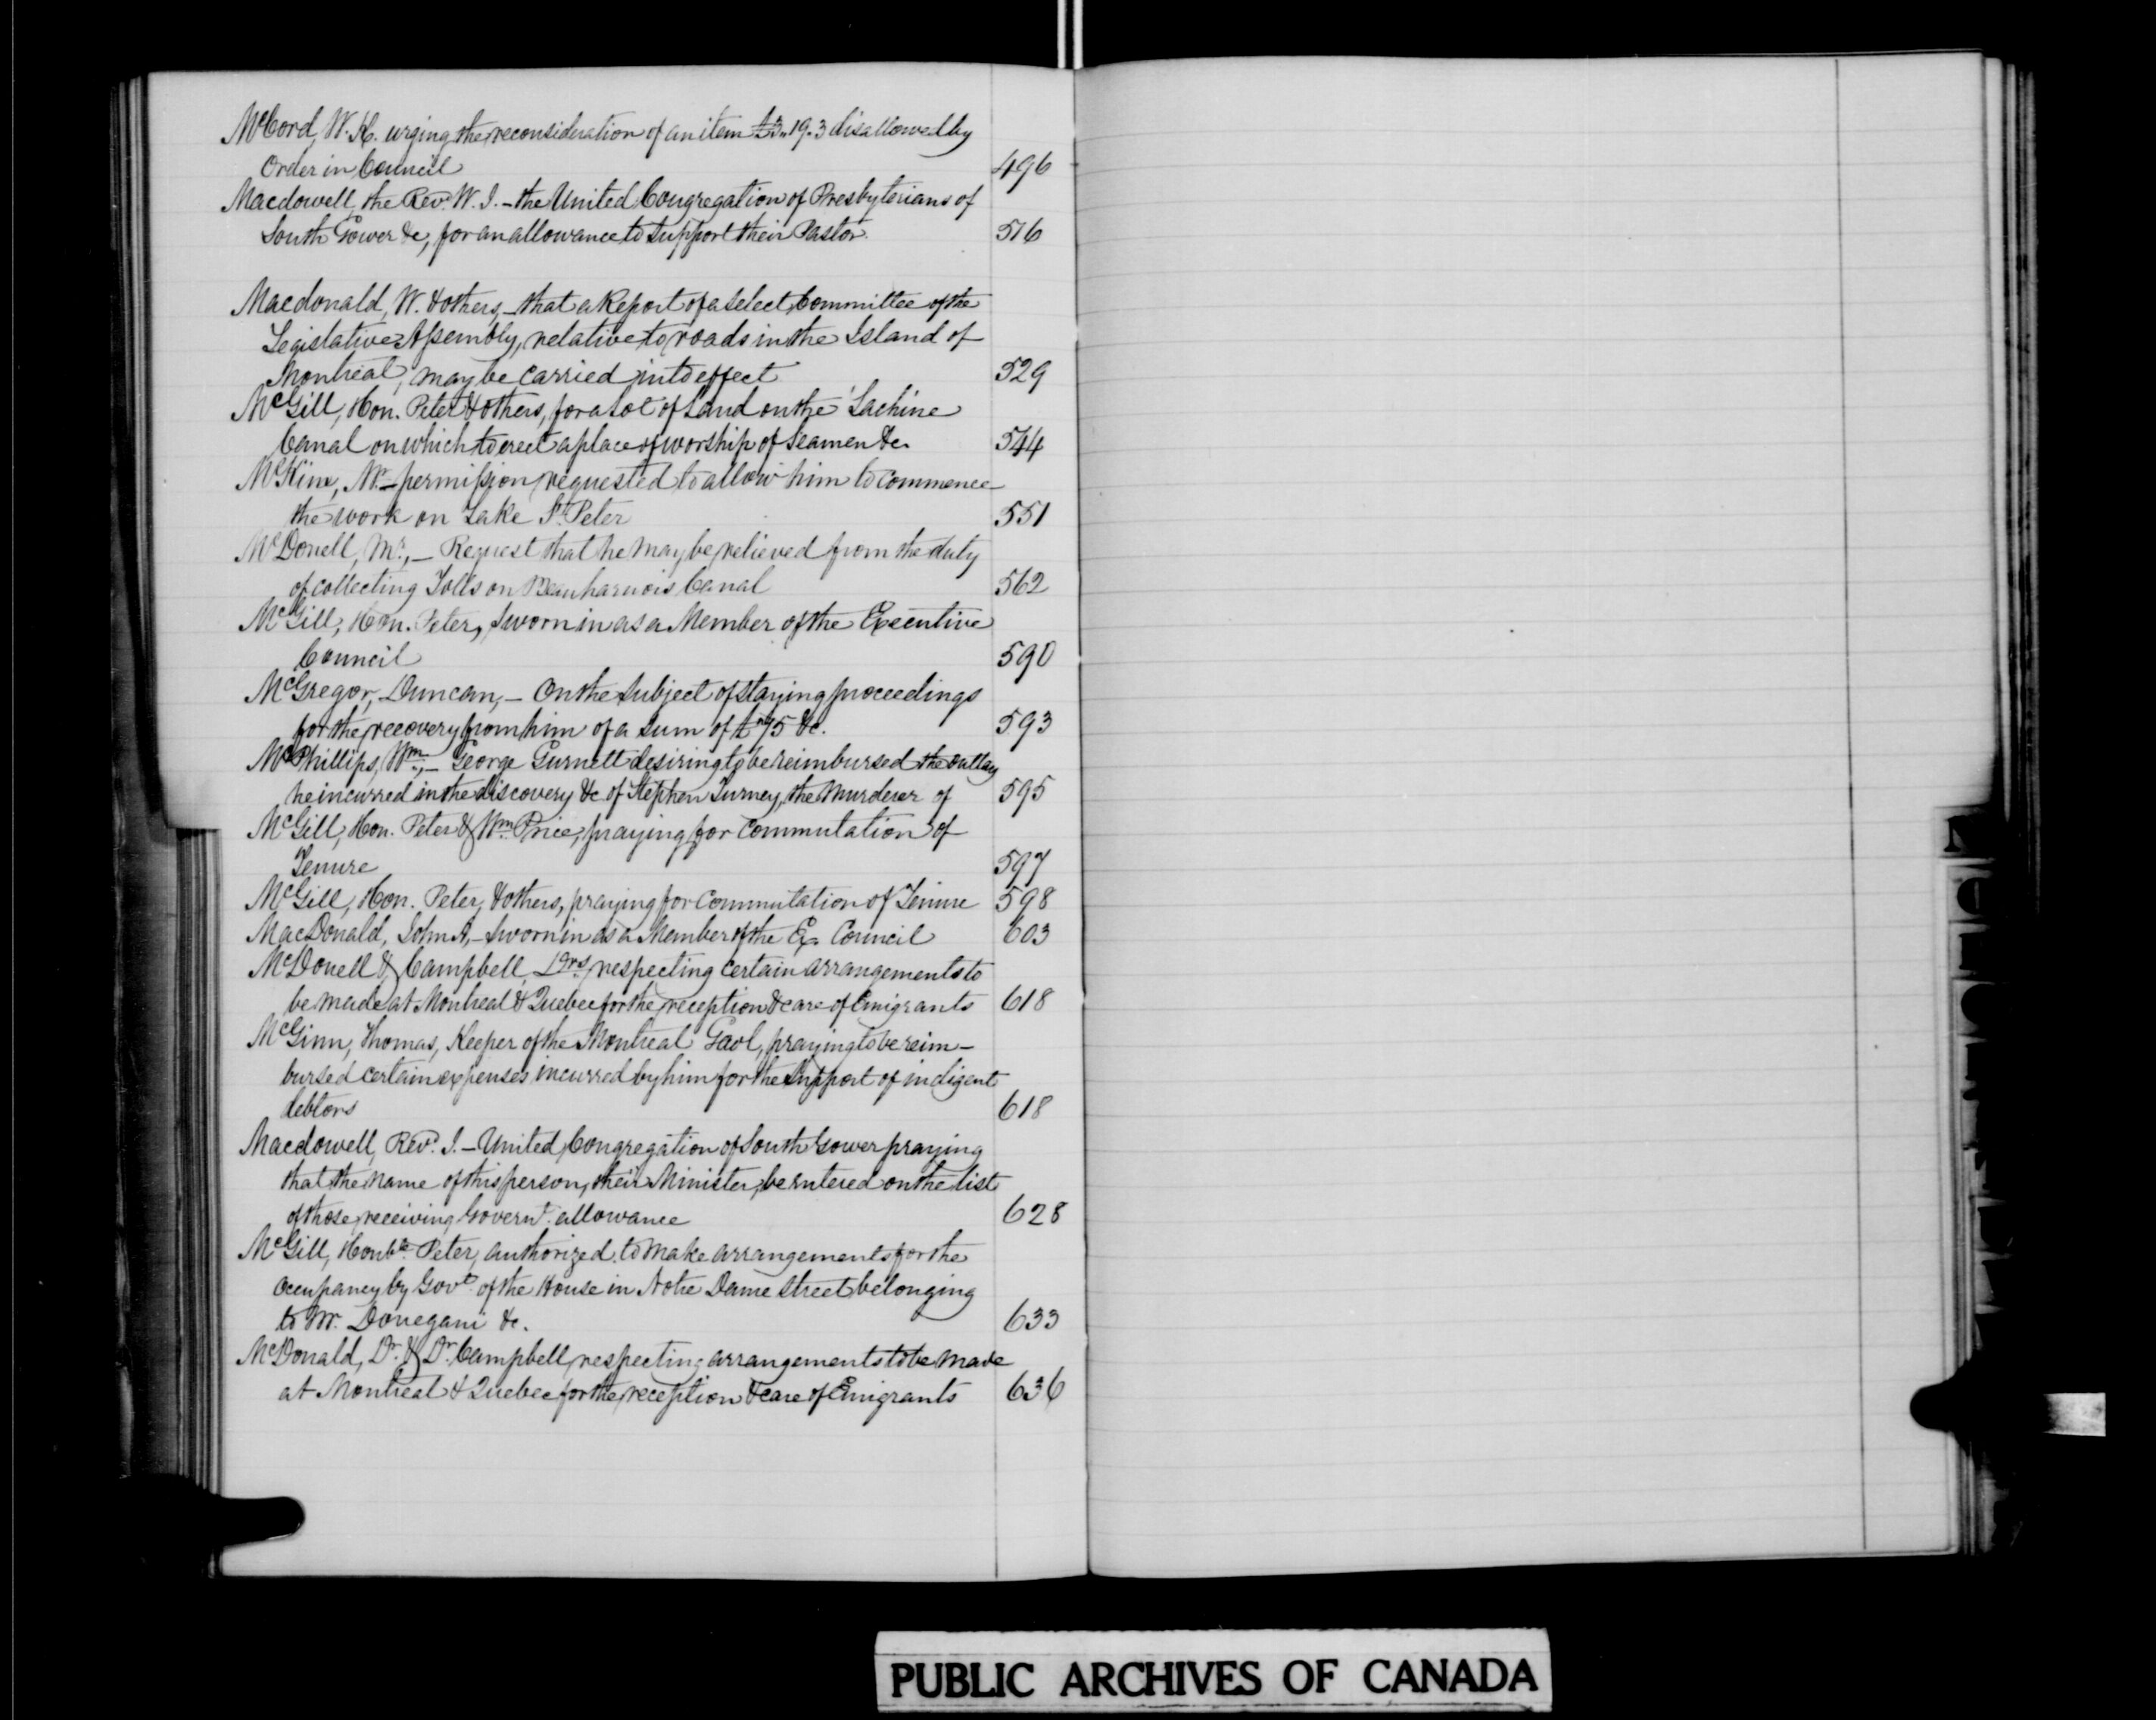 McCord, W. K. urging the reconsideration of an item £3,,19.3 disallowed by
Order in Council 496
Macdowell, the Revd. W. J. - the United Congregation of Presbyterians of
South Gower &c, for an allowance to support their Pastor. 516
Macdonald, W. & others, - that a Report of a Select Committee of the
Legislative Assembly, relative to roads in the Island of
Montreal, may be carried into effect 529
McGill, Hon. Peter & others, for a Lot of Land on the Lachine
Canal on which to erect a place of worship of Seamen &c. 544
Mr - permission requested to allow him to commence
the work on Lake St. Peter 551
McDonell, Mr., - Request that he may be relieved from the duty
of collecting Tolls on Beauharnois Canal 562
McGill, Hon. Peter, Sworn in as a Member of the Executive
Council 590
McGregor, Duncan, - On the subject of staying proceedings
for the recovery from him of a sum of £75 &c. 593
McPhillips, Wm., - George Gurnett desiring to be reimbursed the outlay
he incurred in the discovery &c of Stephen Turney, the Murderer of 595
McGill, Hon. Peter & Wm. Price, praying for commutation of
Tenure 597
McGill, Hon. Peter, & others, praying for Commutation of Tenure 598
MacDonald, John A, - Sworn in as a Member of the Ex. Council 603
McDonell & Campbell, Drs. respecting certain arrangements to
be made at Montreal & Quebec for the reception & care of Emigrants 618
McGinn, Thomas, Keeper of the Montreal Gaol, praying to be reim-
bursed certain expenses incurred by him for the Support of indigent
debtors 618
Macdowell, Revd. J. - United Congregation of South Gower praying
that the name of this person, their Minister, be entered on the list
of those receiving Governt. allowance 628
McGill, Honble. Peter, authorized to make arrangements for the
occupancy by Govt. of the House in Notre Dame Street belonging
to Mr. Donegani &c. 633
McDonald, Dr. & Dr. Campbell, respecting arrangements to be made
at Montreal & Quebec for the reception & care of Emigrants 636
PUBLIC ARCHIVES OF CANADA